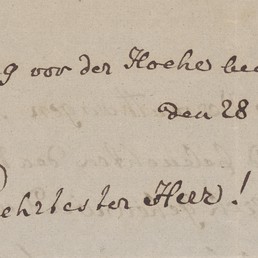 g vor der Hoehe be
den 28
Gehrtester Herr!